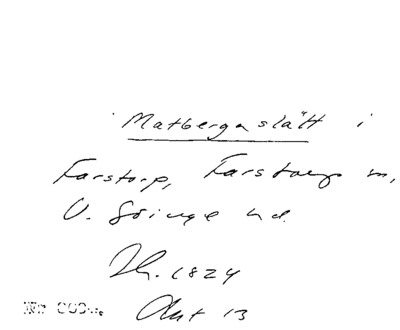 Matbergaslätt i
Farstorp, Farstorps sn,
V. Göinge hd.
Jh. 1824
Akt 13